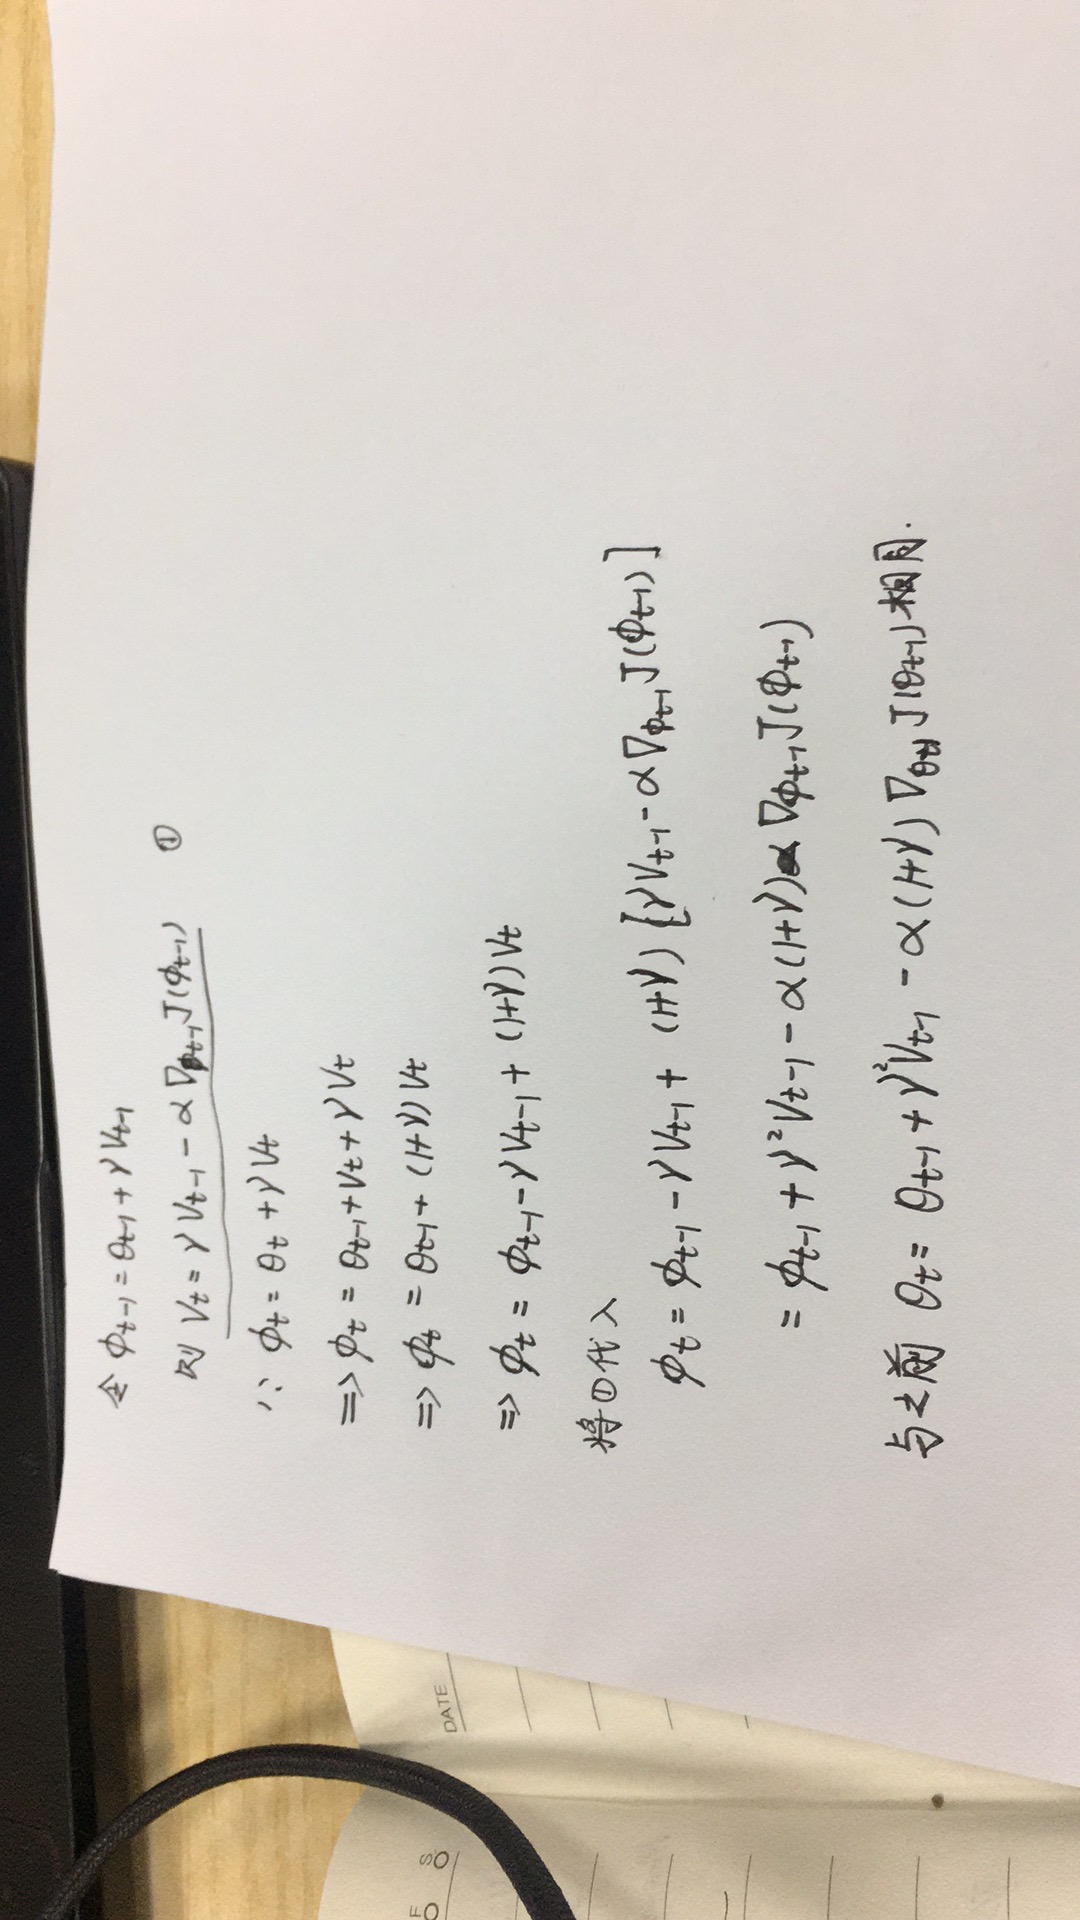 令 ϕt-1 = θt-1 + γVt-1
则 Vt = γVt-1 - α∇ϕt-1J(ϕt-1) ①
∵ ϕt = θt + γVt
=> ϕt = θt-1 + Vt + γVt
=> ϕt = θt-1 + (1+γ)Vt
=> ϕt = ϕt-1 - γVt-1 + (1+γ)Vt
将①代入
ϕt = ϕt-1 - γVt-1 + (1+γ)[γVt-1 - α∇ϕt-1J(ϕt-1)]
= ϕt-1 + γ²Vt-1 - α(1+γ)∇ϕt-1J(ϕt-1)
与之前 θt = θt-1 + γ²Vt-1 - α(1+γ)∇θt-1J(θt-1)相同.
DATE
F S